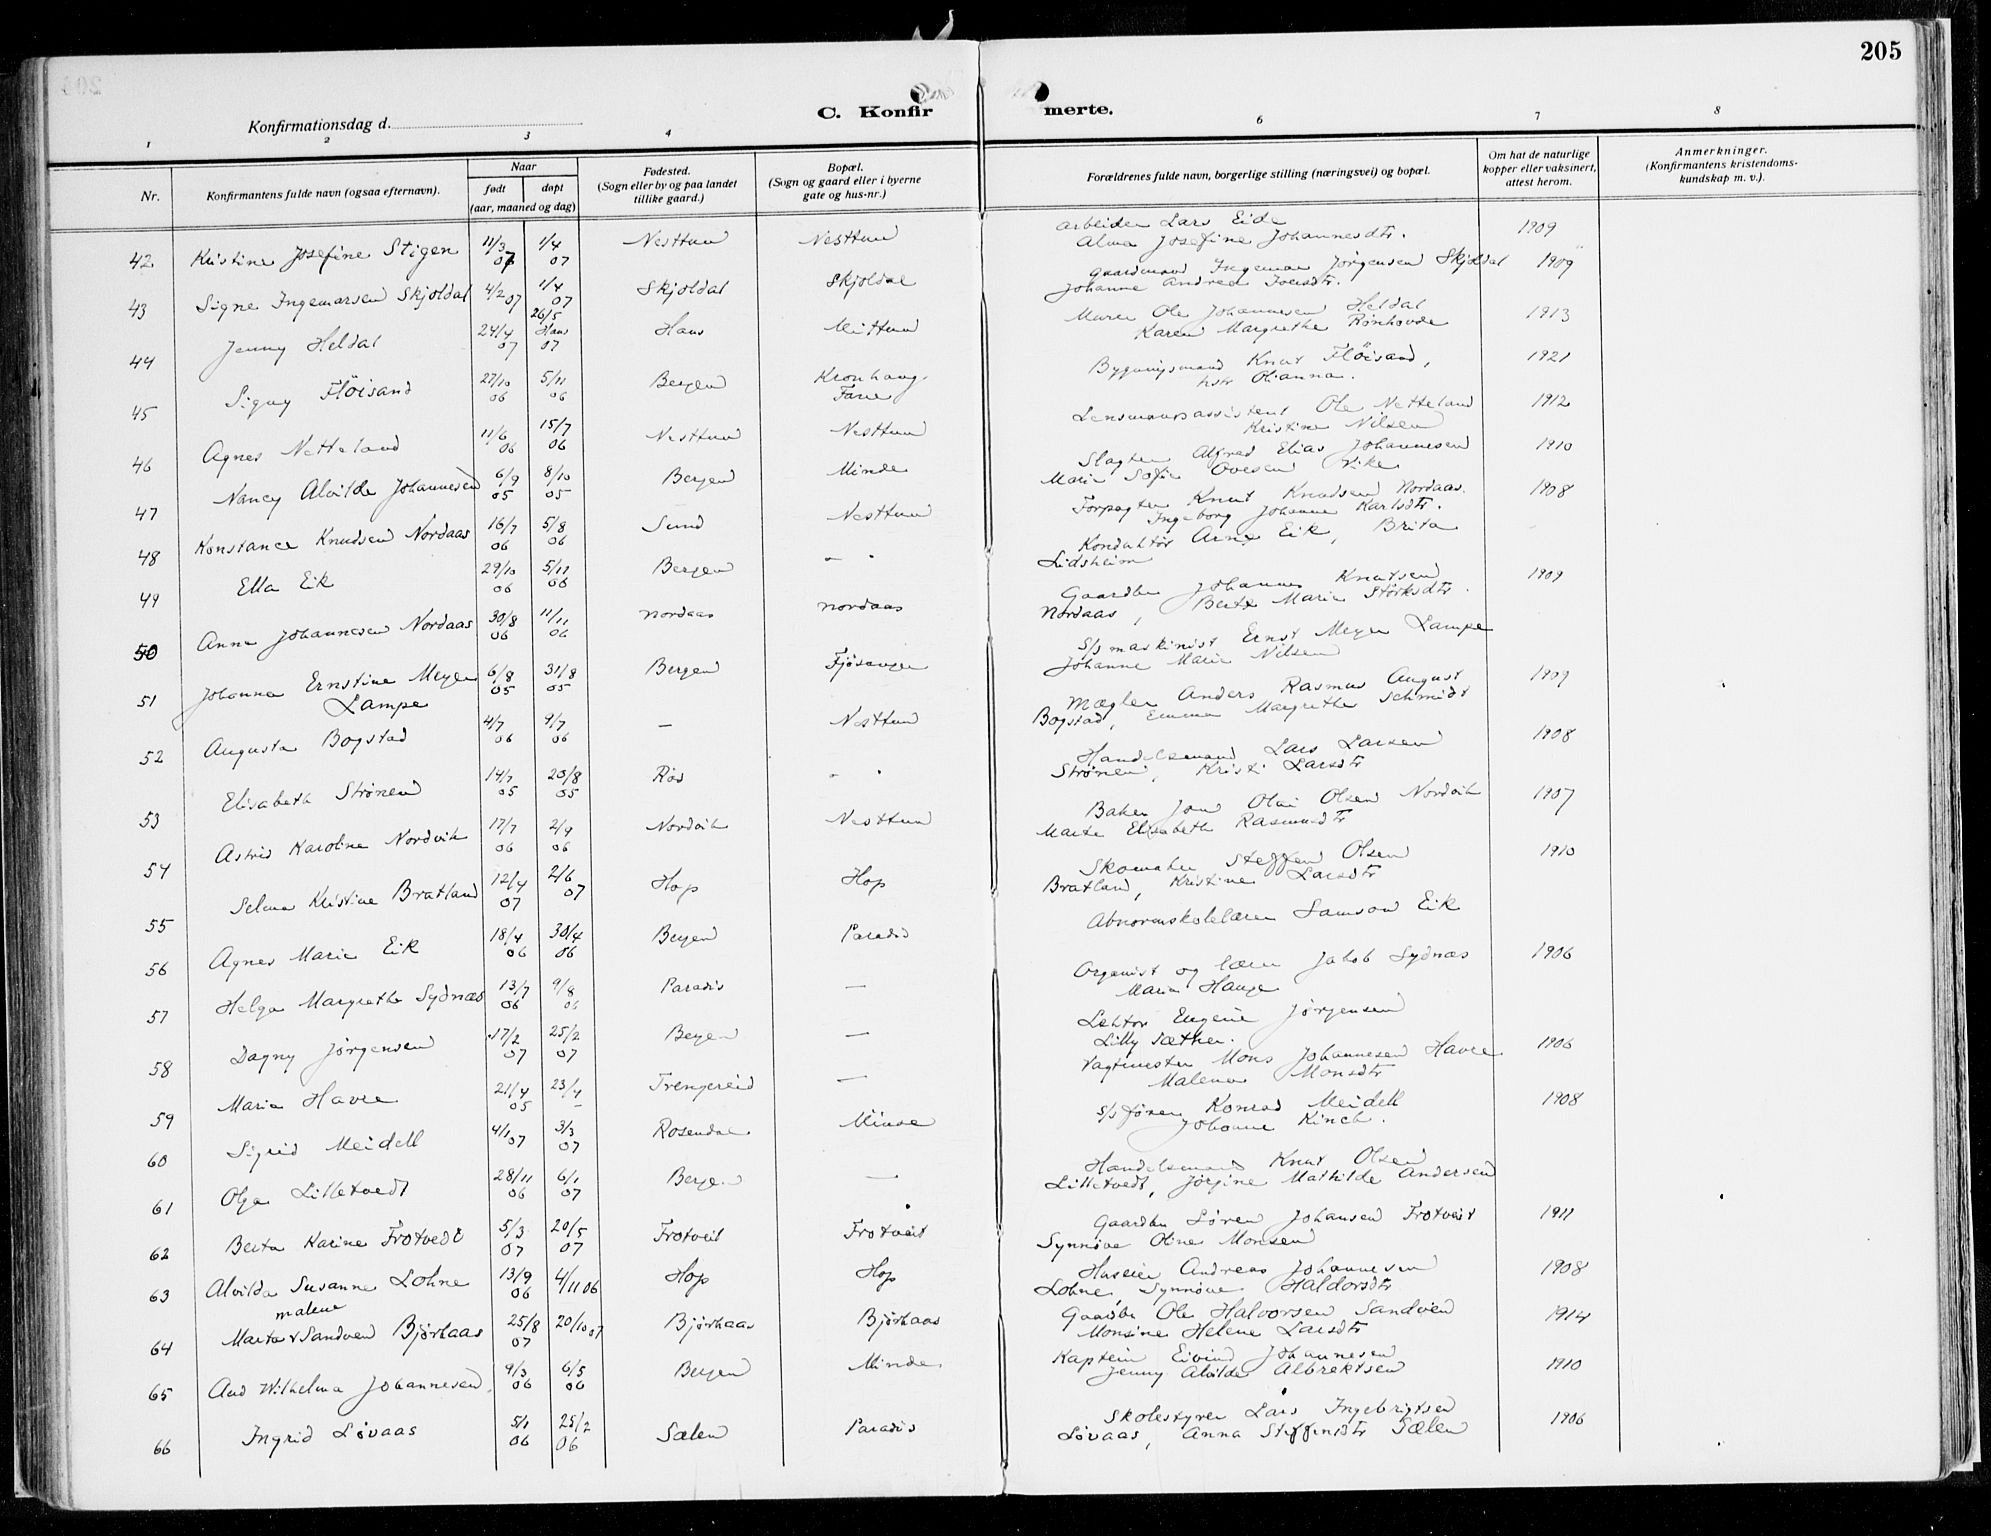 205
C. Konfirmerte.
Konfirmationsdag d.
1 2 3 4 6 7 8
Nr.
Konfirmantens fulde navn (ogsaa efternavn).
Naar
født døpt
(aar, maaned og dag)
Fødested.
(Sogn eller by og paa landet
tillike gaard.)
Bopæl.
(Sogn og gaard eller i byerne
gate og hus-nr.)
Forældrenes fulde navn, borgerlige stilling (næringsvei) og bopæl.
Om hat de naturlige
kopper eller vaksinert,
attest herom.
Anmerkninger.
(Konfirmantens kristendoms-
kundskap m. v.).
42 Kristine Josefine Stigen 11/3 07 1/4 07 Nesttun Nesttun arbeider Lars Eide 1909
Alma Josefine Johannesdtr.
43 Signe Ingemarsen Skjoldal 4/2 07 1/4 07 Skjoldal Skjoldal Gaardmand Ingemar Jørgensen Skjoldal 1909
Johanne Andrea
44 Jenny Heldal 24/4 07 26/5 Haus 07 Haus Murer Ole Johannesen Heldal 1913
Karen Margrethe Rønhovde
45 Signy Fløisand 27/10 06 5/11 06 Bergen Kronhaug Fane Bygningsmand Knut Fløisand, 1921
hstr Olianna.
46 Agnes Netteland 11/6 06 15/7 06 Nesttun Nesttun Lensmannsassistent Ole Netteland 1912
Kristine Nilsen
47 Nancy Alvilde Johannesen 6/9 05 8/10 05 Bergen Minde Slagter Alfred Elias Johannesen 1910
Marie Sofie Ovesen Vike
48 Konstance Knudsen Nordaas 16/7 06 5/8 06 Sund Nesttun Forpagter Knut Knudsen Nordaas. 1908
Ingeborg Johanne Karlsdtr.
49 Ella Eik 29/10 06 5/11 06 Bergen — " Konduktør Arne Eik, Brita
Lidsheim
50 Anna Johannesen Nordaas 30/8 06 11/11 06 Nordaas Nordaas Gaardbr Johannes Knutsen 1909
Nordaas, Berte Marie Størksdtr.
51 Johanna Ernstine Meyer 6/8 05 31/8 05 Bergen Fjøsanger S/s maskinist Ernst Meyer Lampe
Lampe Johanne Marie Nilsen
52 Augusta Bogstad 4/7 06 9/7 06 — Nesttun Mægler Anders Rasmus August 1909
Bogstad, Emma Margrethe Schmidt
53 Elisabeth Strønen 14/7 05 20/8 05 Ros — " Handelsmand Lars Larsen 1908
Strønen, Kristi Larsdtr
54 Astrid Karoline Nordvik 17/7 06 2/9 06 Nordvik Nesttun Baker Jon Olai Olsen Nordvik 1907
Marte Elisabeth Rasmusdtr
55 Selma Kristine Bratland 12/4 07 2/6 07 Hop Hop Skomaker Steffen Olsen 1910
Bratland, Kristine Larsdtr
56 Agnes Marie Eik 18/4 06 30/4 06 Bergen Paradis Abnormskolelærer Samson Eik
57 Helga Margrethe Sydnæs 13/7 06 9/8 06 Paradis — Organist og lærer Jakob Sydnæs 1906
Maria Hauge
58 Dagny Jørgensen 17/2 07 25/2 07 Bergen — Lektor Eugene Jørgensen
Lilly Sæther.
59 Maria Havre 21/4 05 23/4 — Trengereid — Vagtmester Mons Johannesen Havre 1906
Malena Monsdtr
60 Sigrid Meidell 4/1 07 3/3 07 Rosendal Minde S/s fører Konrad Meidell 1908
Johanne Kinch.
61 Olga Lilletvedt 28/11 06 6/1 07 Bergen — Handelsmand Knut Olsen
Lilletvedt, Jørgine Mathilde Andersen
62 Berta Karine Frotvedt 5/3 07 20/5 07 Frotveit Frotveit Gaardbr Søren Johansen Frotveit 1911
Synnøve Oline Monsen
63 Alvilda Susanne Lohne 13/9 06 4/11 06 Hop Hop Huseier Andreas Johannesen 1908
Lohne, Synnøve Haldorsdtr
malene
64 Marta v Sandven Bjørkaas 25/8 07 20/10 07 Bjørkaas Bjørkaas Gaardbr Ole Halvorsen Sandven 1914
Monsine Helene Larsdtr
65 Aud Wilhelma Johannesen 9/3 06 6/5 06 Bergen Minde Kaptein Eivind Johannesen 1910
Jenny Alvilde Albrektsen
66 Ingrid Løvaas 5/1 06 25/2 06 Sælen Paradis Skolestyrer Lars Ingebrigtsen 1906
Løvaas, Anna Steffensdtr Sælen